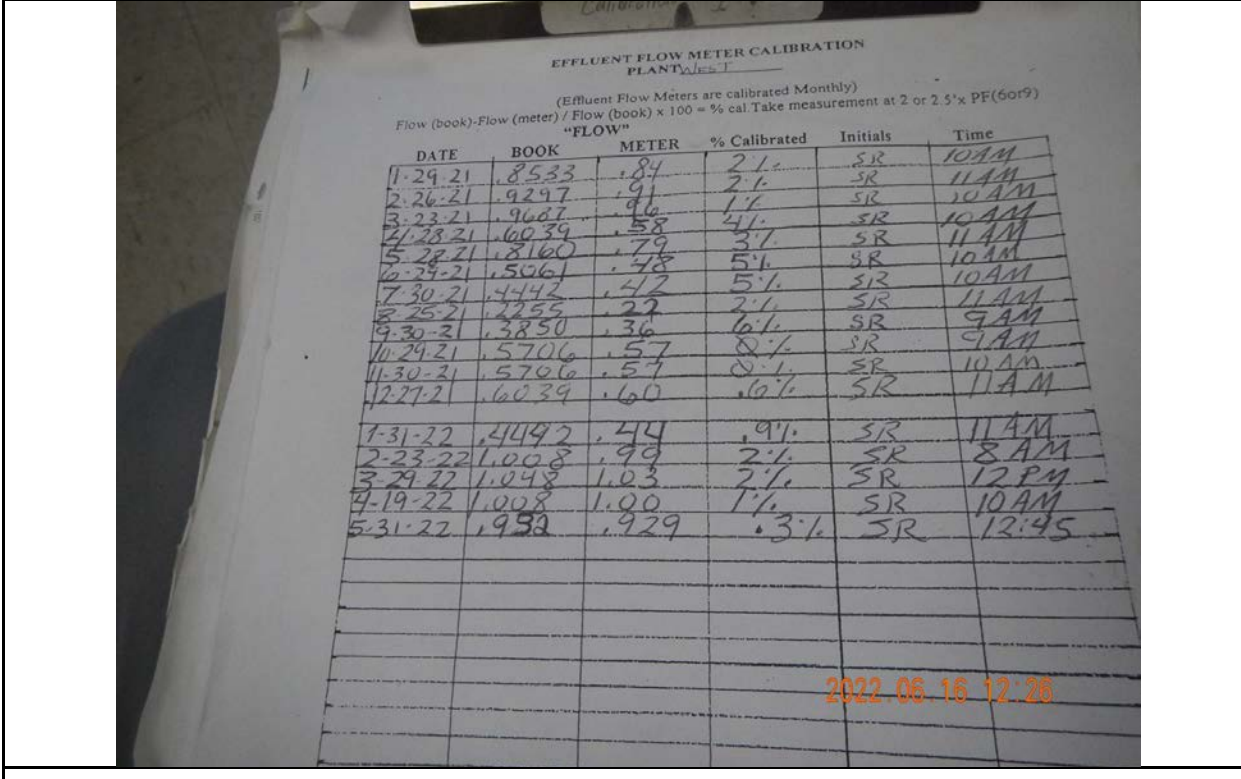 EFFLUENT FLOW METER CALIBRATION
PLANT WEST
(Effluent Flow Meters are calibrated Monthly)
Flow (book)-Flow (meter) / Flow (book) x 100 = % cal.Take measurement at 2 or 2.5'x PF(6or9)
"FLOW"
DATE BOOK METER % Calibrated Initials Time
1-29-21 .8533 .84 2% SR 10AM
2-26-21 .9297 .91 2% SR 11AM
3-23-21 .9687 .96 1% SR 10AM
4-28-21 .6039 .58 4% SR 10AM
5-28-21 .8160 .79 3% SR 11AM
6-29-21 .5061 .48 5% SR 10AM
7-30-21 .4442 .42 5% SR 10AM
8-25-21 .2255 .22 2% SR 11AM
9-30-21 .3850 .36 6% SR 9AM
10-29-21 .5706 .57 0% SR 9AM
11-30-21 .5706 .57 0% SR 10AM
12-27-21 .6039 .60 .6% SR 11AM
1-31-22 .4442 .44 .9% SR 11AM
2-23-22 1.008 .99 2% SR 8AM
3-29-22 1.048 1.03 2% SR 12PM
4-19-22 1.008 1.00 1% SR 10AM
5-31-22 .932 .929 .3% SR 12:45
2022.06.16 12:26